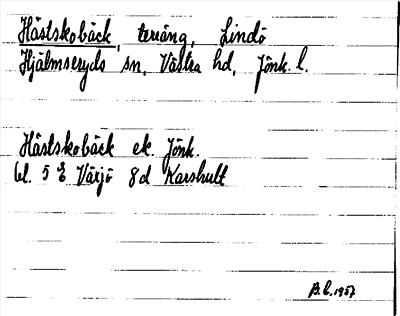 Hästskobäck, terräng, Lindö
Hjälmseryds sn, Västra hd, Jönk. l.
Hästskobäck ek. Jönk.
bl. 5 E Växjö 8d Karshult
B.C. 1957